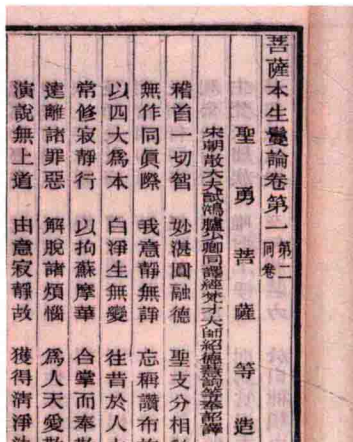 菩薩本生鬘論卷第一第二同卷
聖勇菩薩等造
宋朝散大夫試鴻臚少卿同譯經梵才大師紹德慧詢等奉詔譯
稽首一切智　妙湛圓融德　聖支分相
無作同眞際　我意靜無諍　忘稱讚布
以四大爲本　白淨生無變　往昔於人
常修寂靜行　以拘蘇摩華　合掌而奉
遠離諸罪惡　解脫諸煩惱　爲人天愛敬
演說無上道　由意寂靜故　獲得清淨